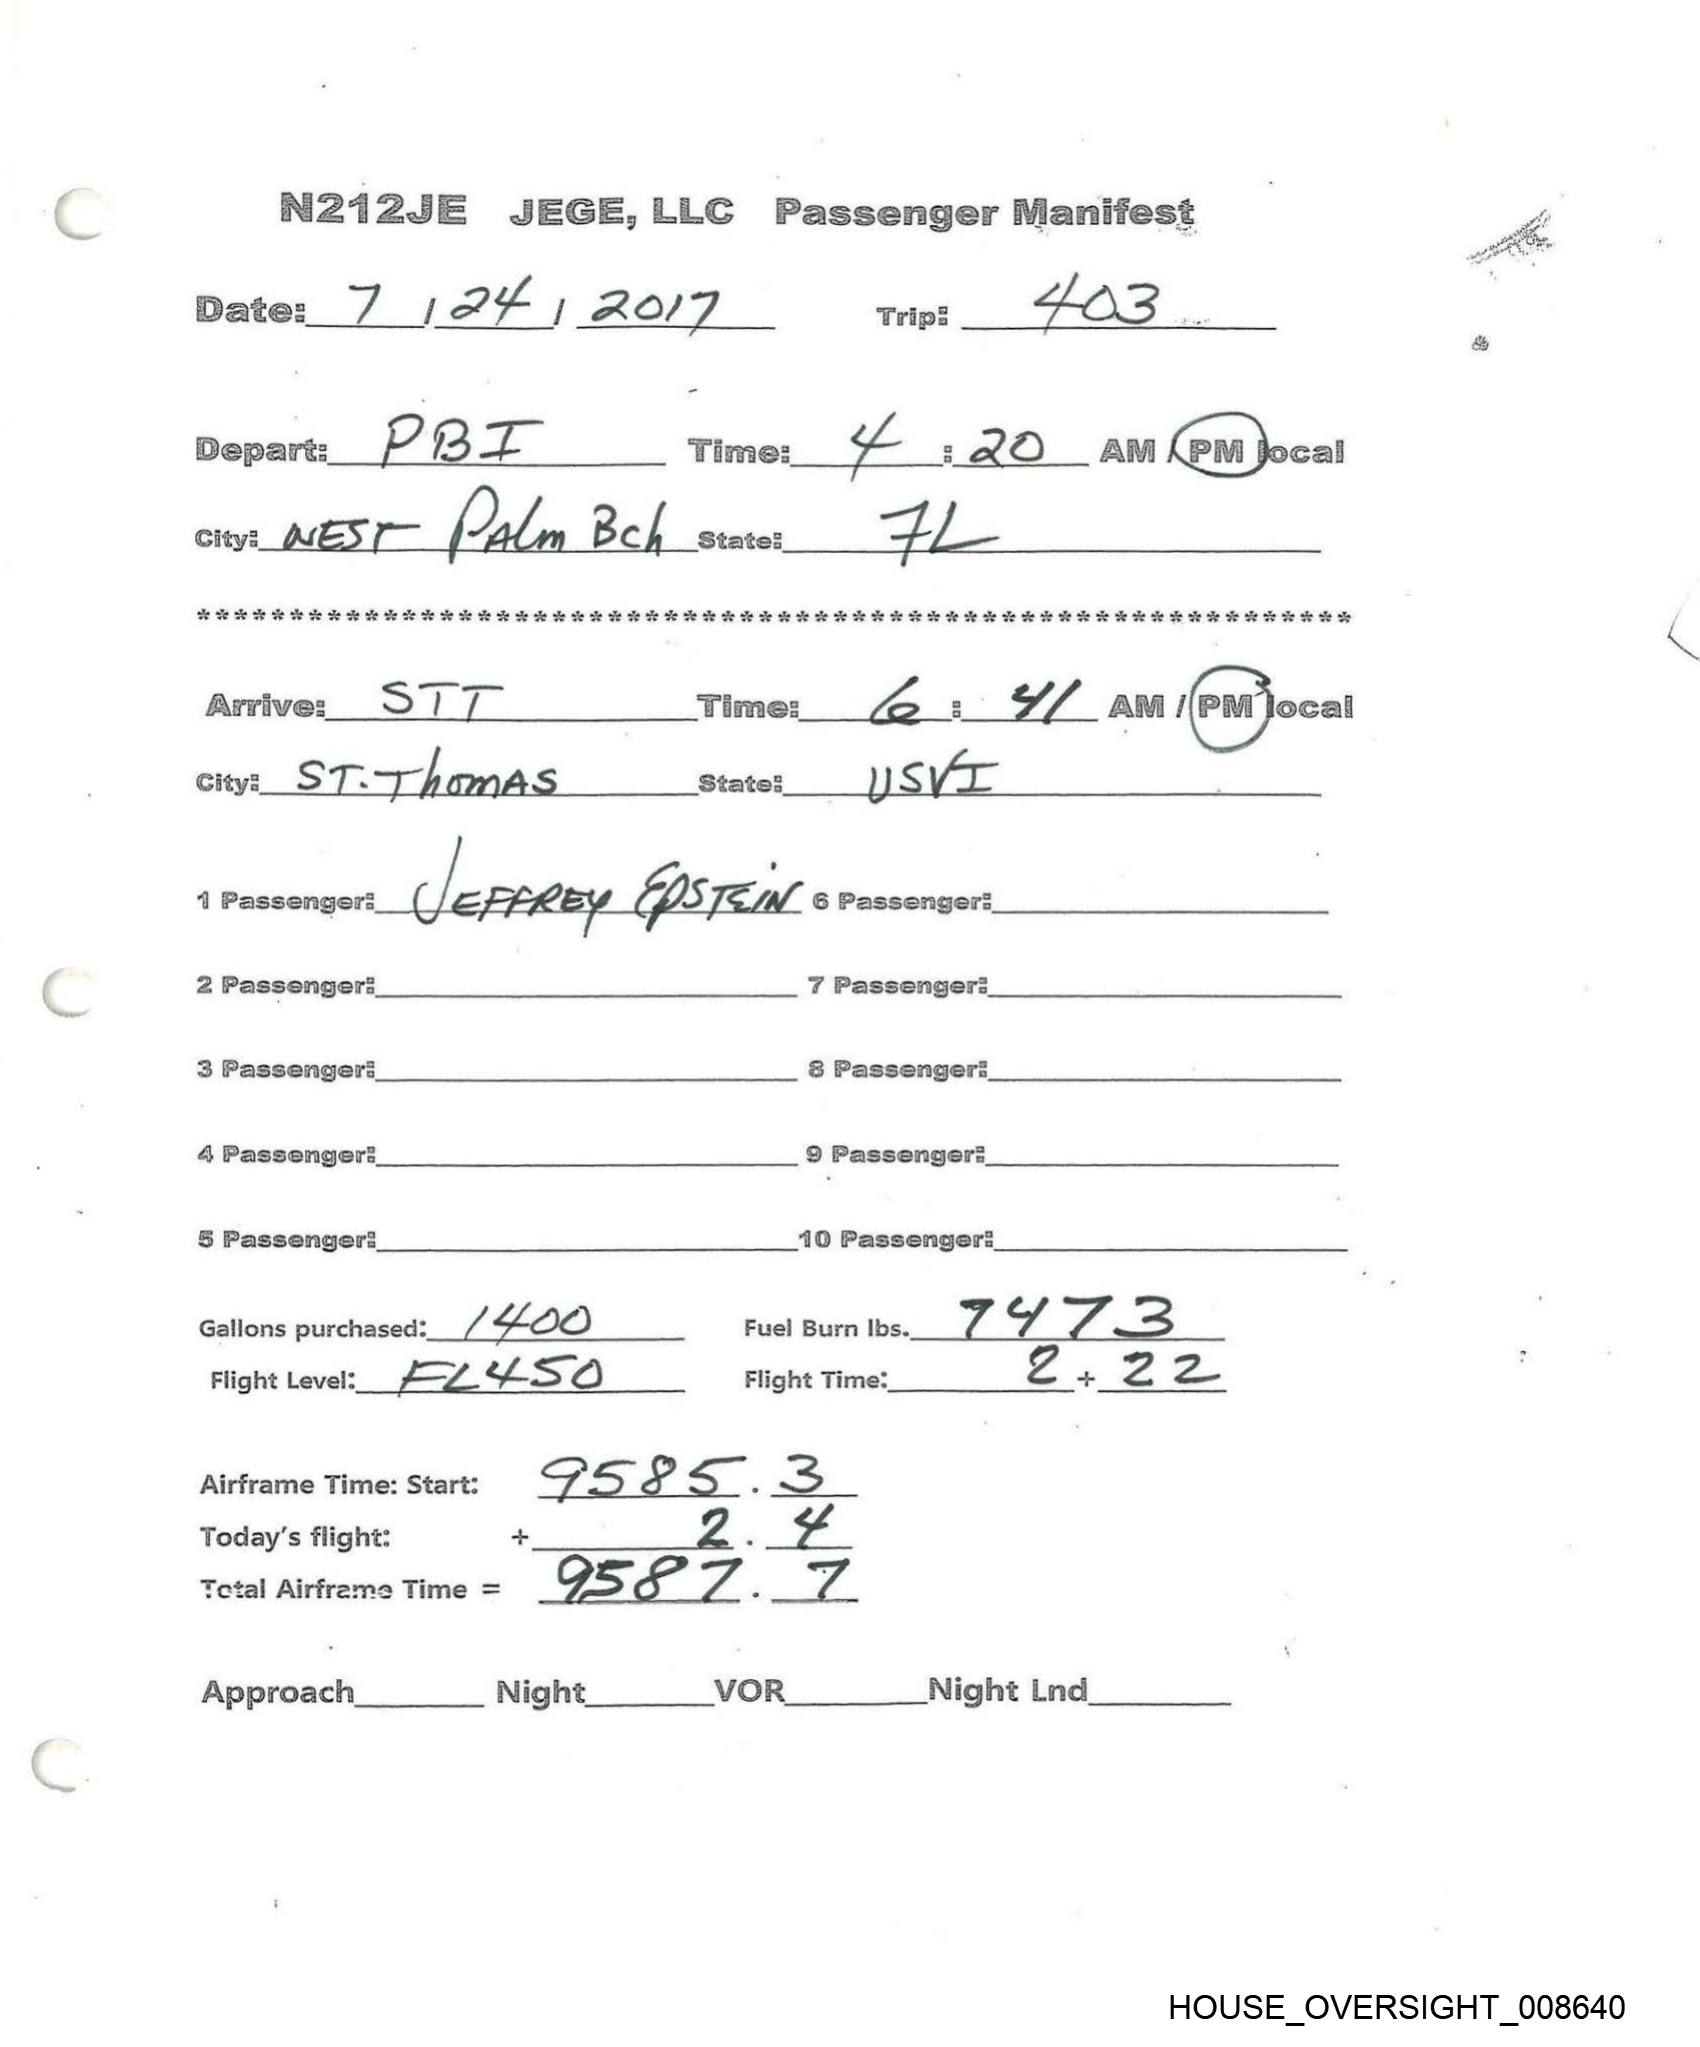 N212JE JEGE, LLC Passenger Manifest
Date: 7 / 24 / 2017 Trip: 403
Depart: PBI Time: 4 : 20 AM / PM local
City: WEST PAlm Bch State: FL
***************************************************************
Arrive: STT Time: 6 : 41 AM / PM local
City: ST. ThomAS State: USVI
1 Passenger: JEFFREY EPSTEIN 6 Passenger:
2 Passenger: 7 Passenger:
3 Passenger: 8 Passenger:
4 Passenger: 9 Passenger:
5 Passenger: 10 Passenger:
Gallons purchased: 1400 Fuel Burn lbs. 7473
Flight Level: FL450 Flight Time: 2 + 22
Airframe Time: Start: 9585 . 3
Today's flight: + 2 . 4
Total Airframe Time = 9587 . 7
Approach Night VOR Night Lnd
HOUSE_OVERSIGHT_008640